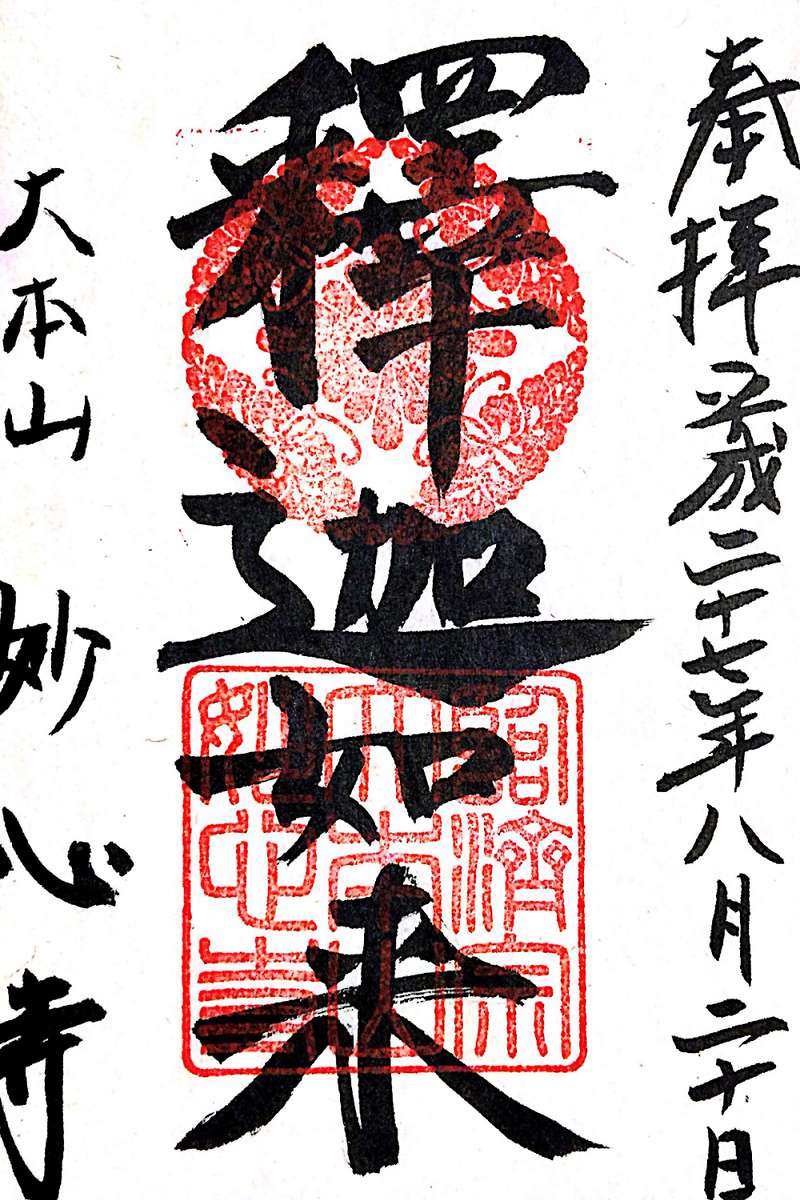 奉拝 平成二十七年八月二十日
釋迦如来
大本山 妙心寺
臨濟宗
大本山
妙心寺